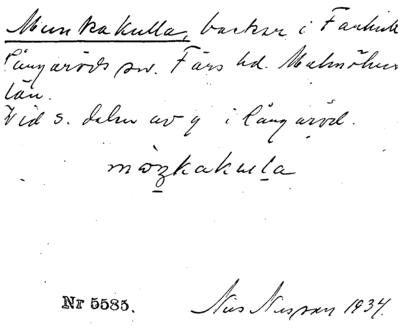 Munkakulla, backar i Farhult
Långaröds sn. Färs hd. Malmöhus
län.
Vid s. delen av 9 i Långaröd.
Nr 5585. Nils Nilsson 1934.